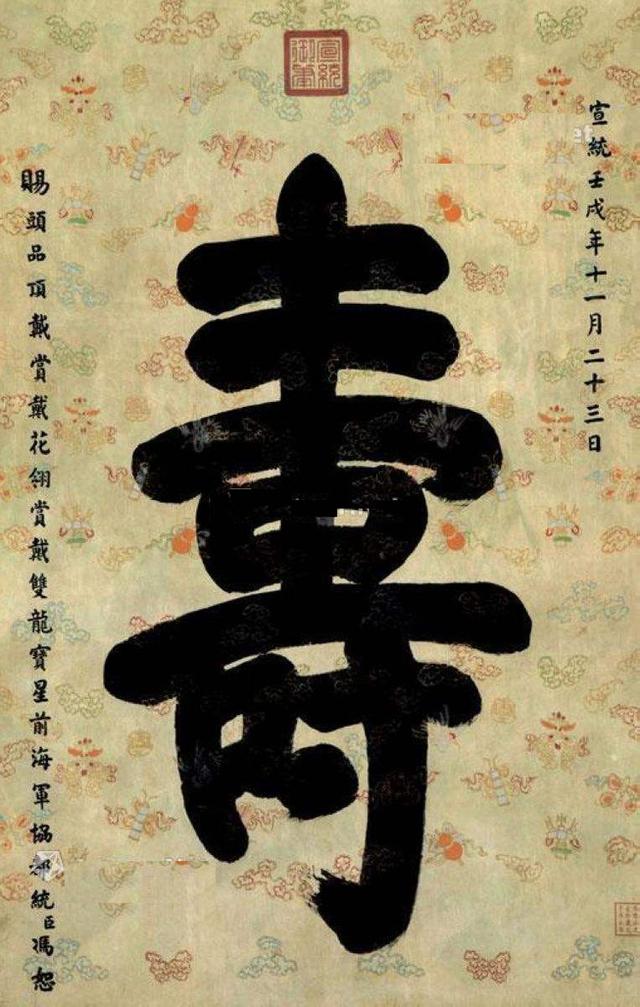 宣統御筆
宣統壬戌年十一月二十三日
壽
賜頭品頂戴賞戴花翎賞戴雙龍寶星前海軍協都統臣馮恕